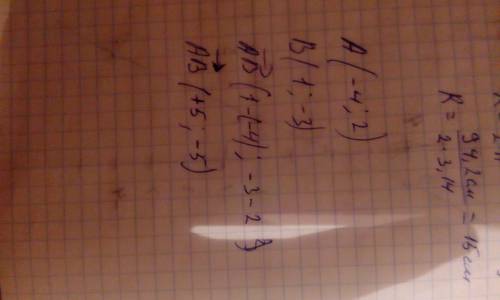 R = 94,2см / 2·3,14 = 15см
A(-4; 2)
B(1; -3)
AB(1-(-4); -3-2)
AB(+5; -5)